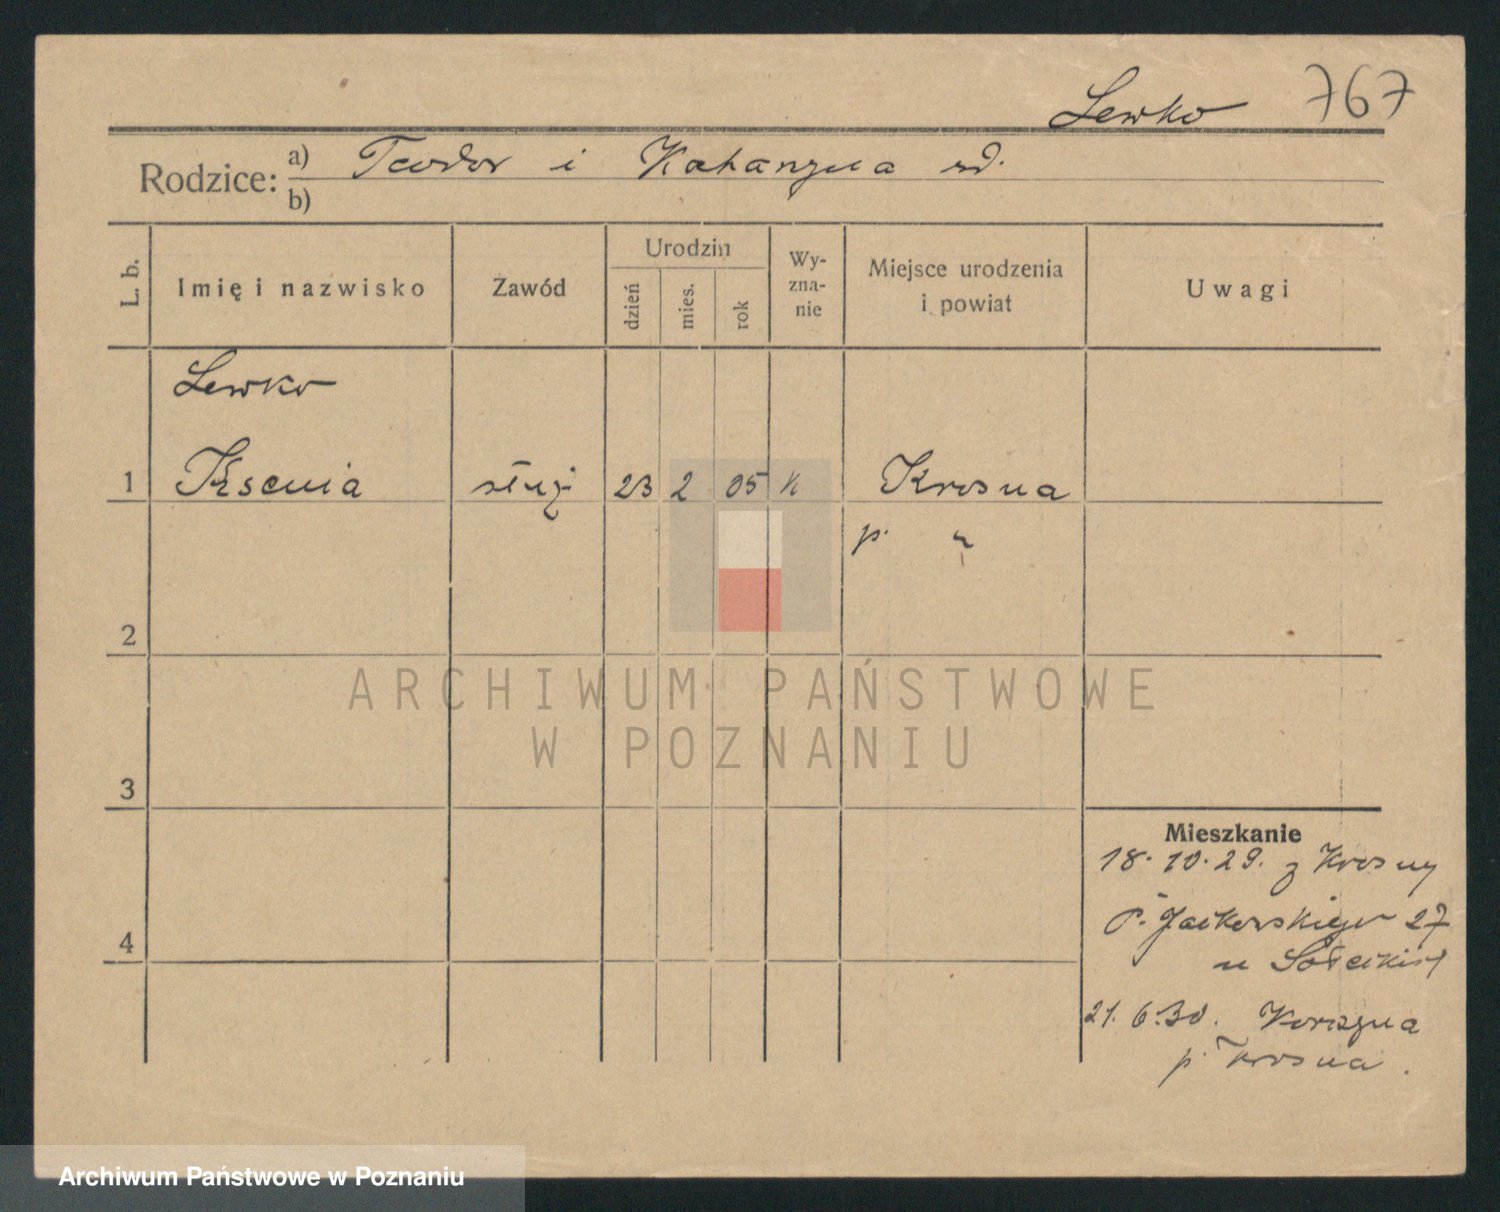 Lewko 767
Rodzice: a) Teodor i Katarzyna
b)
L. b.
Imię i nazwisko
Zawód
Urodzin
dzień
mies.
rok
Wy-
zna-
nie
Miejsce urodzenia
i powiat
Uwagi
Lewko
1 Ksenia służ 23 2 05 k Krosna
p. "
2
3
4
Mieszkanie
18.10.29. z Krosny
27
u
21.6.30.
p. Krosna.
ARCHIWUM PAŃSTWOWE
W POZNANIU
Archiwum Państwowe w Poznaniu